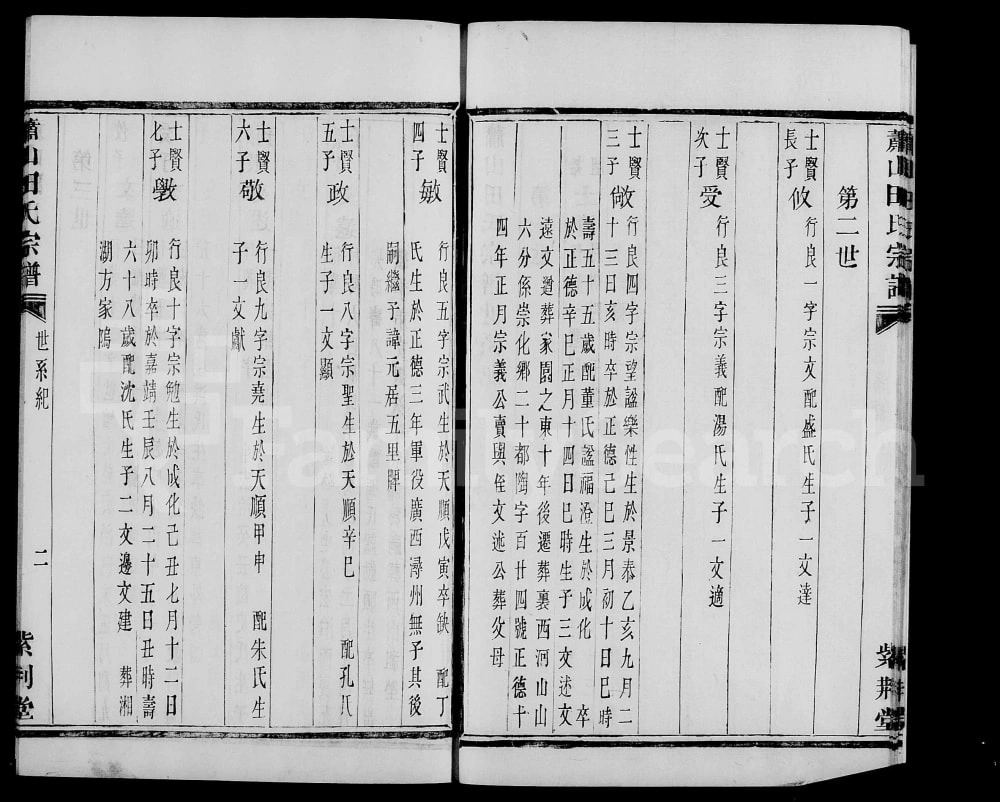 蕭山田氏宗譜
紫荆堂
第二世
士賢長子
攸
行良一字宗文配盛氏生子一文達
士賢次子
受
行良三字宗義配湯氏生子一文適
士賢三子
倣
行良四字宗望謚樂性生於景泰乙亥九月二
十三日亥時卒於正德己巳三月初十日巳時
壽五十五歲配董氏謚福澄生於成化 卒
於正德辛巳正月十四日巳時生子三文述文
遠文遵葬家園之東十年後遷葬裏西河山山
六分係崇化鄉二十都陶字百廿四號正德十
四年正月宗義公賣與侄文述公葬父母
士賢四子
敏
行良五字宗武生於天順戊寅卒缺 配丁
氏生於正德三年軍役廣西潯州無子其後
嗣繼子諱元居五里牌
士賢五子
政
行良八字宗聖生於天順辛巳 配孔氏
生子一文顯
士賢六子
敬
行良九字宗堯生於天順甲申 配朱氏生
子一文獻
士賢七子
斆
行良十字宗勉生於成化己丑七月十二日
卯時卒於嘉靖壬辰八月二十五日丑時壽
六十八歲配沈氏生子二文邊文建 葬湘
湖方家隖
蕭山田氏宗譜
世系紀
二
紫荆堂